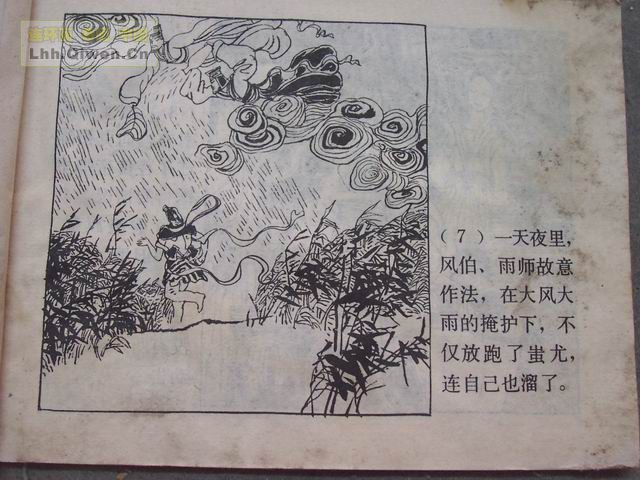 Lhh.Qiwen.Cn
(7)一天夜里,
风伯、雨师故意
作法,在大风大
雨的掩护下,不
仅放跑了蚩尤,
连自己也溜了。